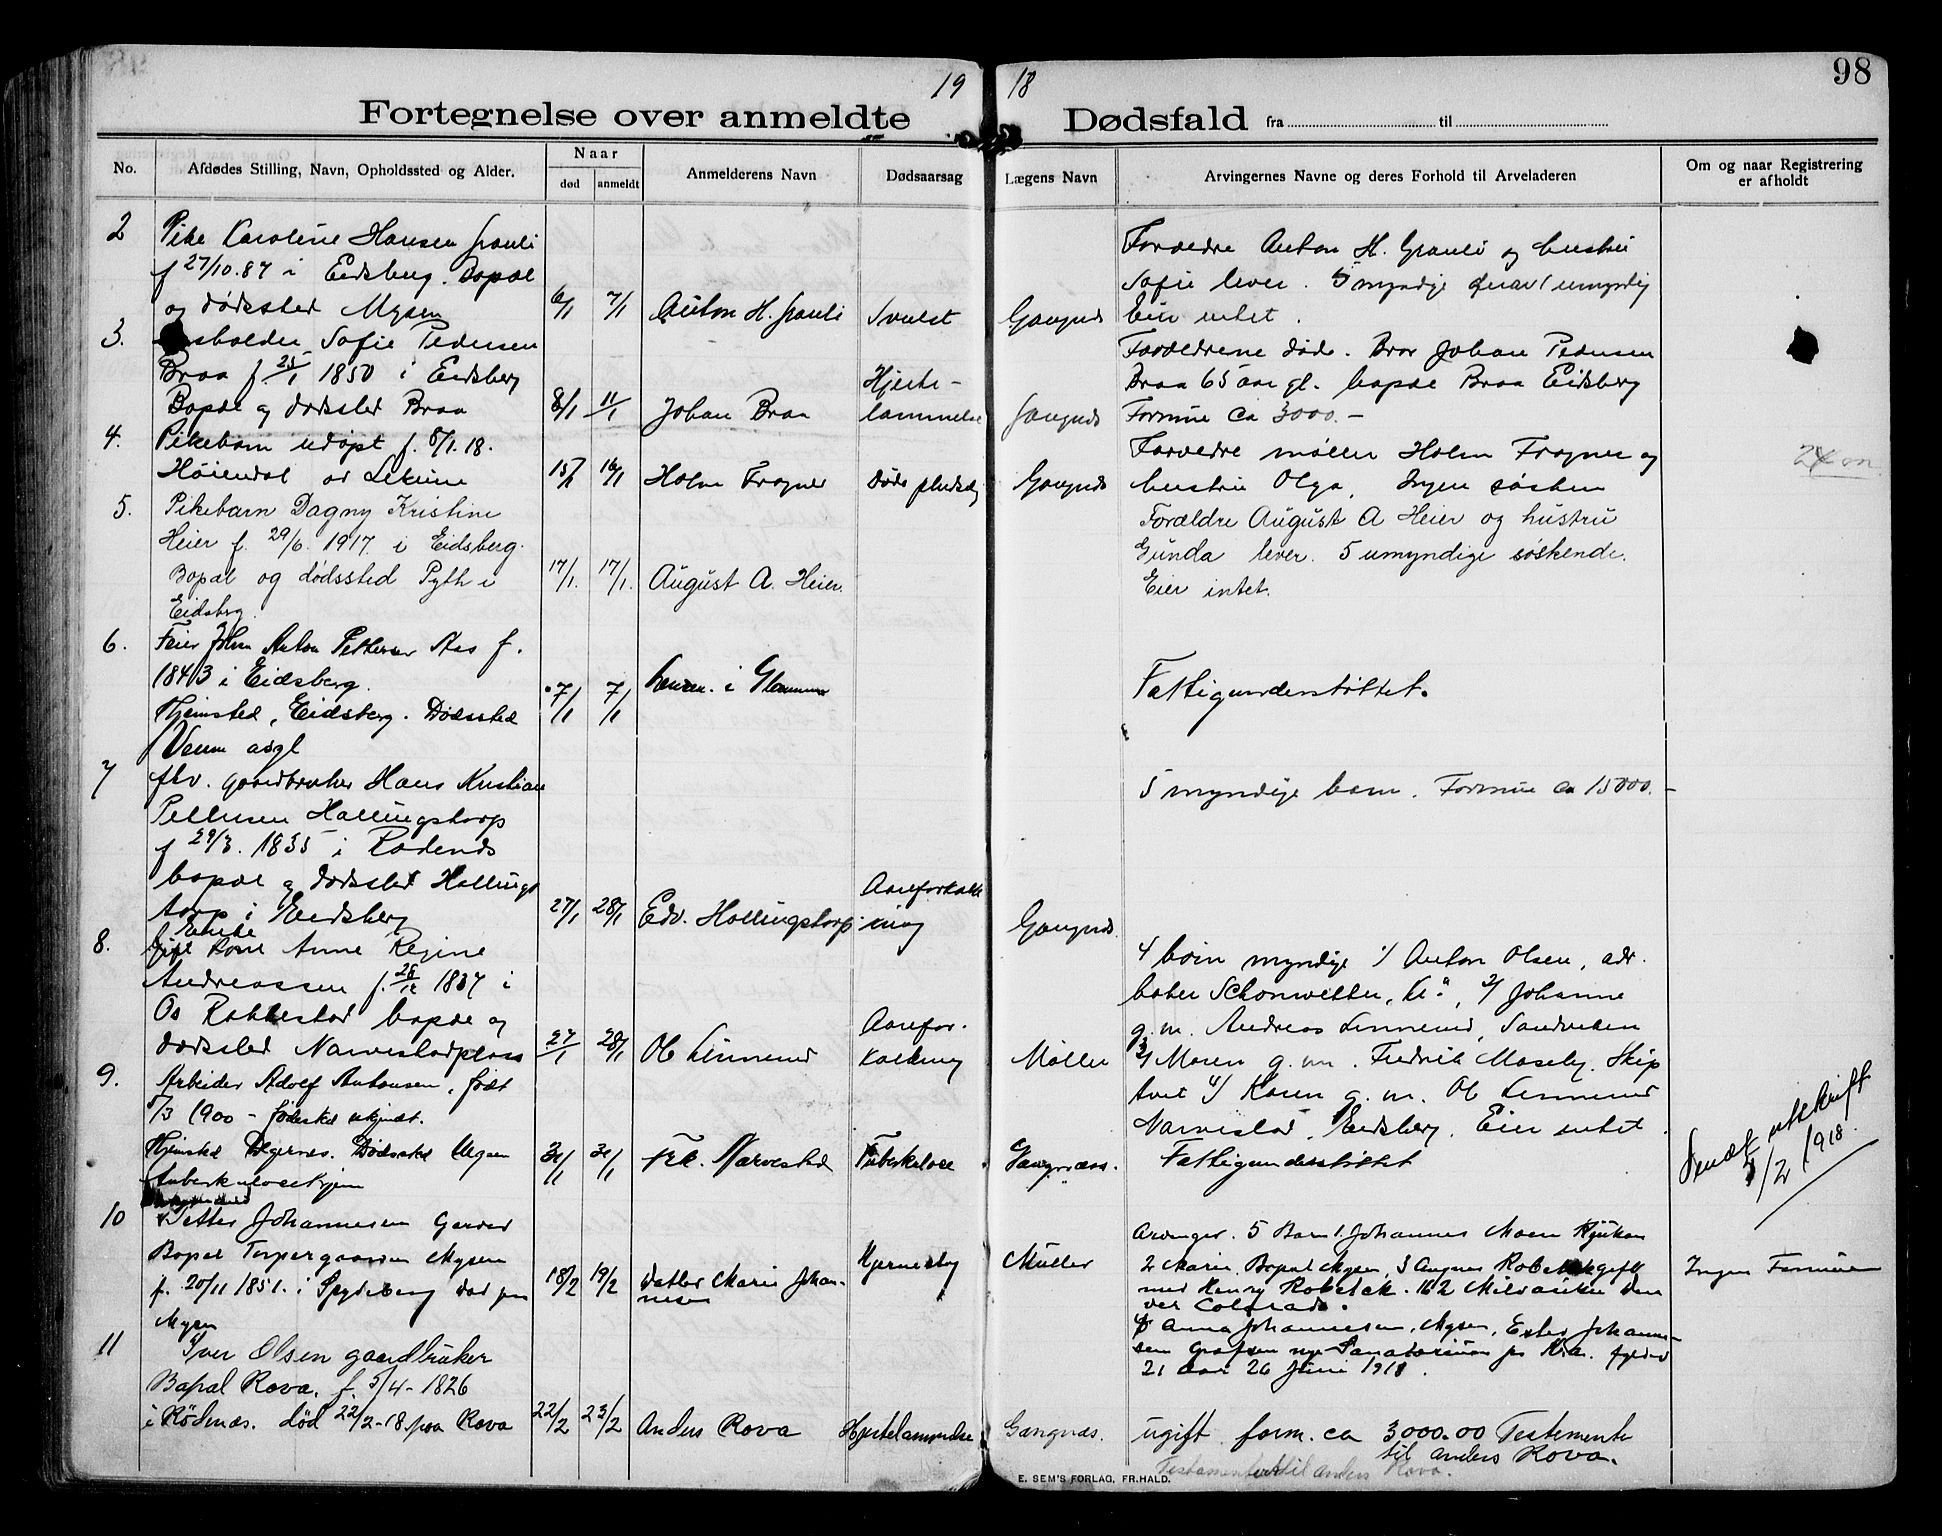 98
19 18
Fortegnelse over anmeldte Dødsfald fra til
No.
Afdødes Stilling, Navn, Opholdssted og Alder.
Naar
død
anmeldt
Anmelderens Navn
Dødsaarsag
Lægens Navn
Arvingernes Navne og deres Forhold til Arveladeren
Om og naar Registrering
er afholdt
2
Pike Karoline Hansen Grauli
f 27/10.87 i Eidsberg. Bopæl
og dødssted Mysen
6/1
7/1
Anton H. Grauli
Svulst
Gangnæs
Forældre Anton H. Grauli og hustru
Sofie lever. 5 myndige herav 1 umyndig
Eier intet.
3.
Husholder Sofie Pedersen
Braa f 25/1 1850 i Eidsberg
Bopæl og dødssted Braa
8/1
11/1
Johan Braa
Hjerte-
lammelse
Gangnæs
Forældrene døde. Bror Johan Pedersen
Braa 65 aar gl. bopæl Braa Eidsberg
Formue ca 3000.-
4.
Pikebarn udøpt f. 8/1.18.
Høiendal av Lekum
15/1
16/1
Holm Fragner
Døde pludselig
Gangnæs
Forældre møller Holm Fragner og
hustru Olga. Ingen søsken
5.
Pikebarn Dagny Kristine
Heier f. 29/6. 1917. i Eidsberg.
Bopæl og dødssted Pyth i
Eidsberg.
17/1.
17/1.
August A. Heier.
Forældre August A Heier og hustru
Gunda lever. 5 umyndige søskende.
Eier intet.
6.
Feier Johan Anton Pettersen Aas f.
1843 i Eidsberg.
Hjemsted, Eidsberg. Dødssted
Veum asyl
7/1
7/1
Lensm. i Glemmen
Fattigunderstøttet.
7
fhv. gaardbruker Hans Kristian
Pettersen Hallingstorp
f 29/3. 1835 i Rødenes
bopæl og dødssted Hallings
torp i Eidsberg
27/1
28/1
Edv. Hallingstorp.
Aareforkalk
ning
Gangnæs.
5 myndige barn. Formue ca 15000.-
8.
Enke
Gift Kone Anne Regine
Andreassen f. 28/12 1837 i
Os Rakkestad bopæl og
dødssted Narvestadplass
27/1
28/1
Ole Linnerud
Aarefor-
kalkning
Møller
4 børn myndige 1/ Anton Olsen, adr.
baker Schonwetter, Kr.a, 2/ Johanne
g.m. Andreas Linnerud, Sandveden
3/ Maren g.m. Fredrik Moseby. Skip
tvet 4/ Karen g.m. Ole Linnerud
Narvestad, Eidsberg. Eier intet.
9.
Arbeider Adolf Antonsen, født
5/3 1900 - fødested ukjendt.
Hjemsted Degernes. Dødssted Mysen
Tuberkulosehjem
30/1
30/1
Frk. Narvestad
Tuberkulose
Gangnæss.
Fattigunderstøttet
Sendt utskrift
5/2 1918.
10
Petter Johannesen
Bopæl Torpergaarden Mysen
f. 20/11 1851. i Spydeberg død paa
Mysen
18/2
19/2
Datter Marie Johan-
nesen
Hjerneslag
Müller
Arvinger. 5 Barn 1. Johannes Moen Rjukan
2 Marie. Bopæl Mysen, 3 Agnes gift
med Henry Robetek. 162 Milvaukee Den
ver Colorado.
4 Anna Johannesen, Mysen, Ester Johanne-
sen Grefsen nye Sanatorium pr Kra. fylder
21 aar 26 Juni 1918.
Ingen Formue
11
Iver Olsen gaardbruker
Bopæl Rova. f. 5/4-1826
i Rødenæs. død 22/2-18 paa Rova
22/2
23/2
Anders Rova
Hjertelammelse
Gangnæs.
ugift. form. ca 3000.00 Testamente
til Anders Rova.
Testamentert til Anders Rova.
E. SEM'S FORLAG, FR.HALD.